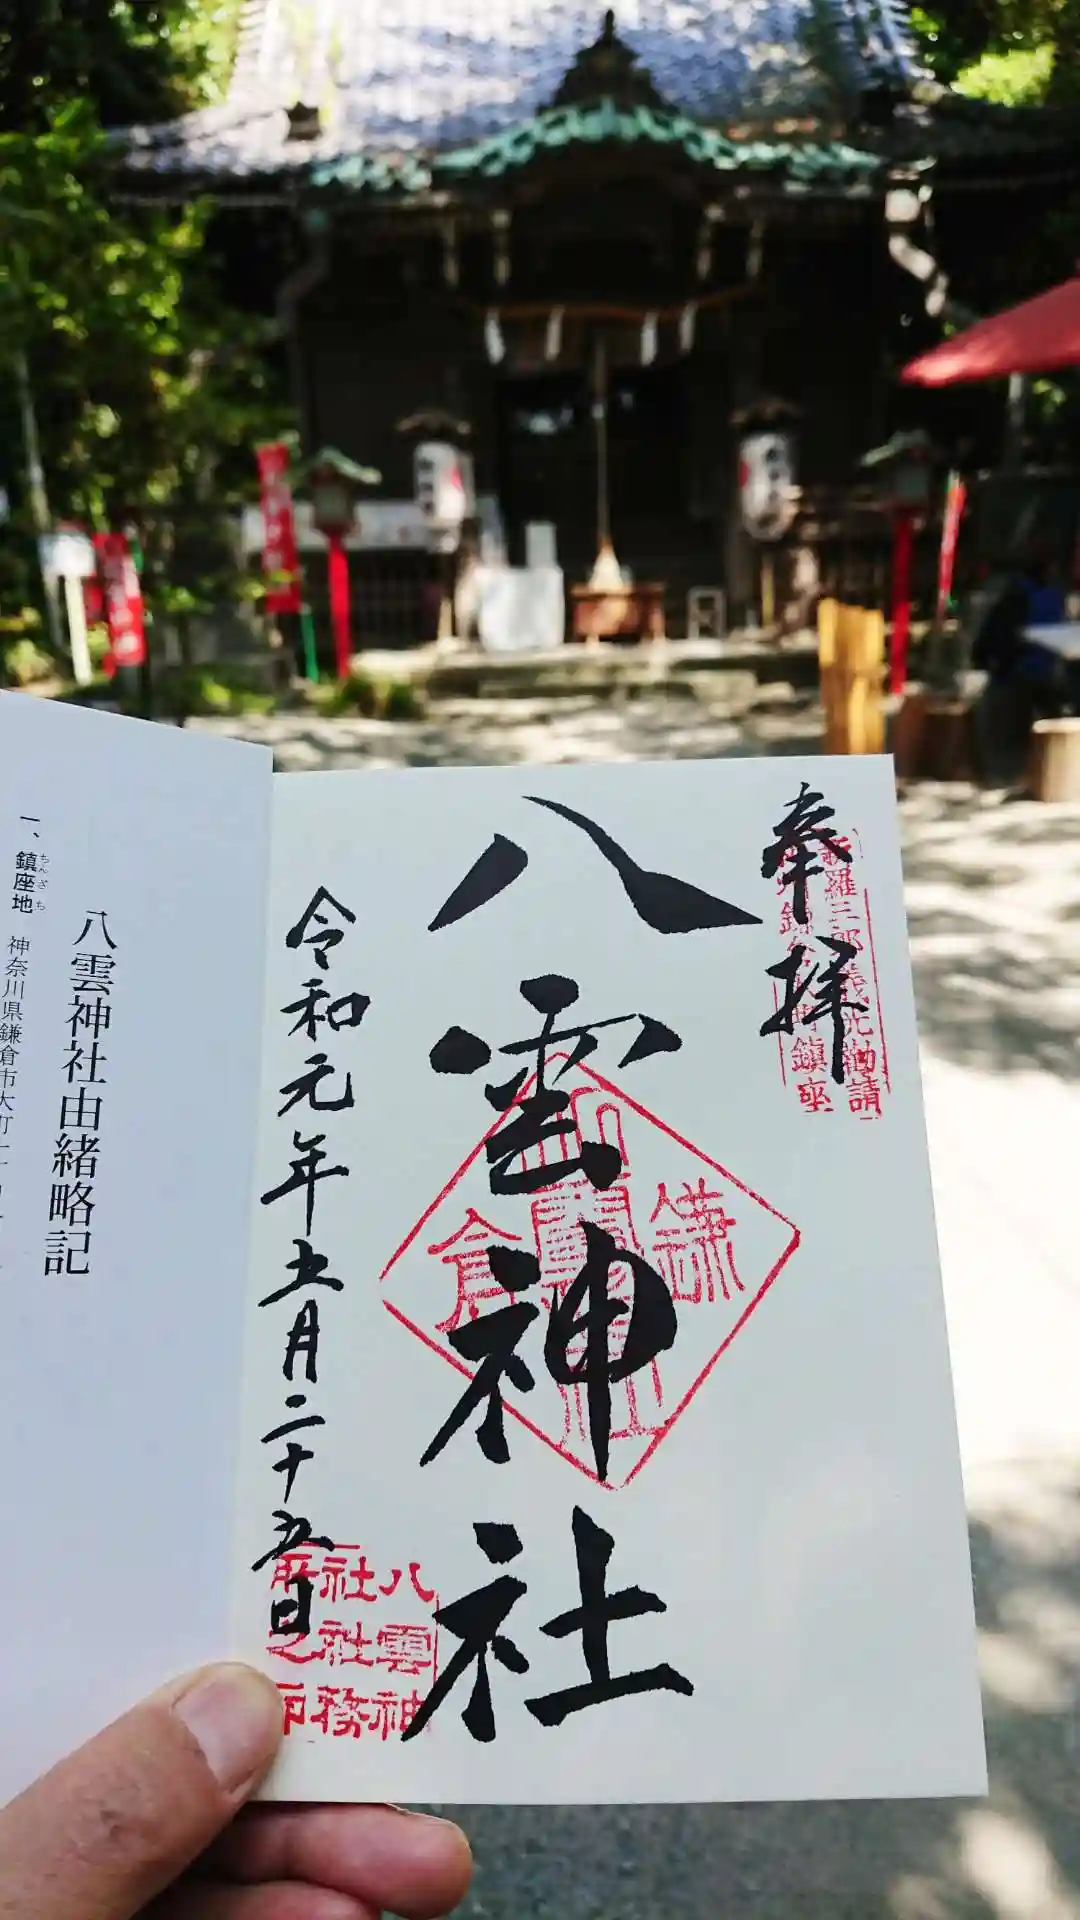 奉拝
新羅三郎義光勧請
八雲神社
鎌倉
令和元年五月二十五日
八雲神
社社務
所之印
八雲神社由緒略記
一、鎮座地 神奈川県鎌倉市大町
ちんざち